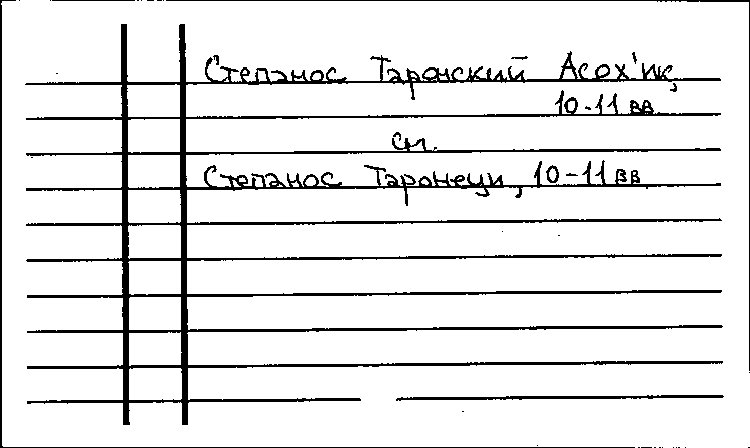 Степанос Таронский Асох'ик,
10-11 вв
см.
Степанос Таронеци, 10-11 вв